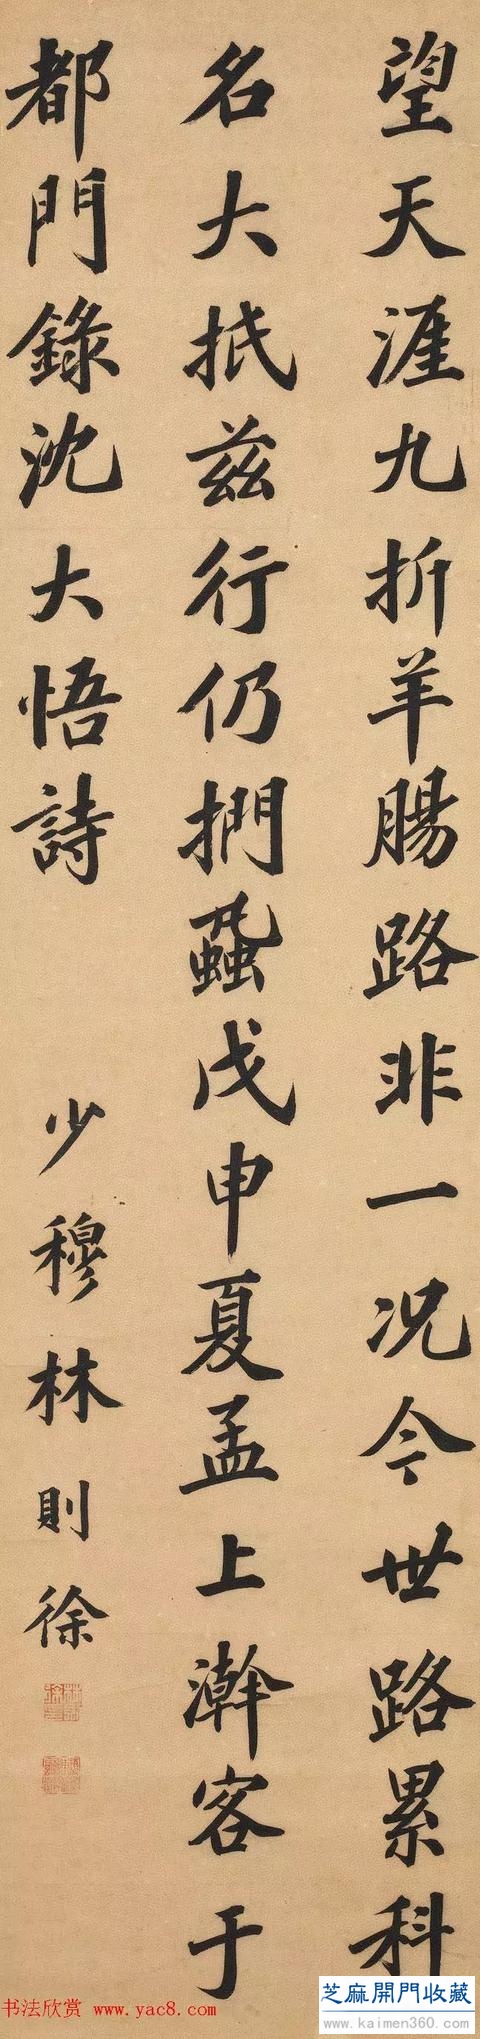 望天涯九折羊腸路非一况今世路累科
名大抵兹行仍捫蝨戊申夏孟上澣客于
都門錄沈大悟詩
少穆林則徐
书法欣赏 www.yac8.com
芝麻開門收藏
www.kaimen360.com